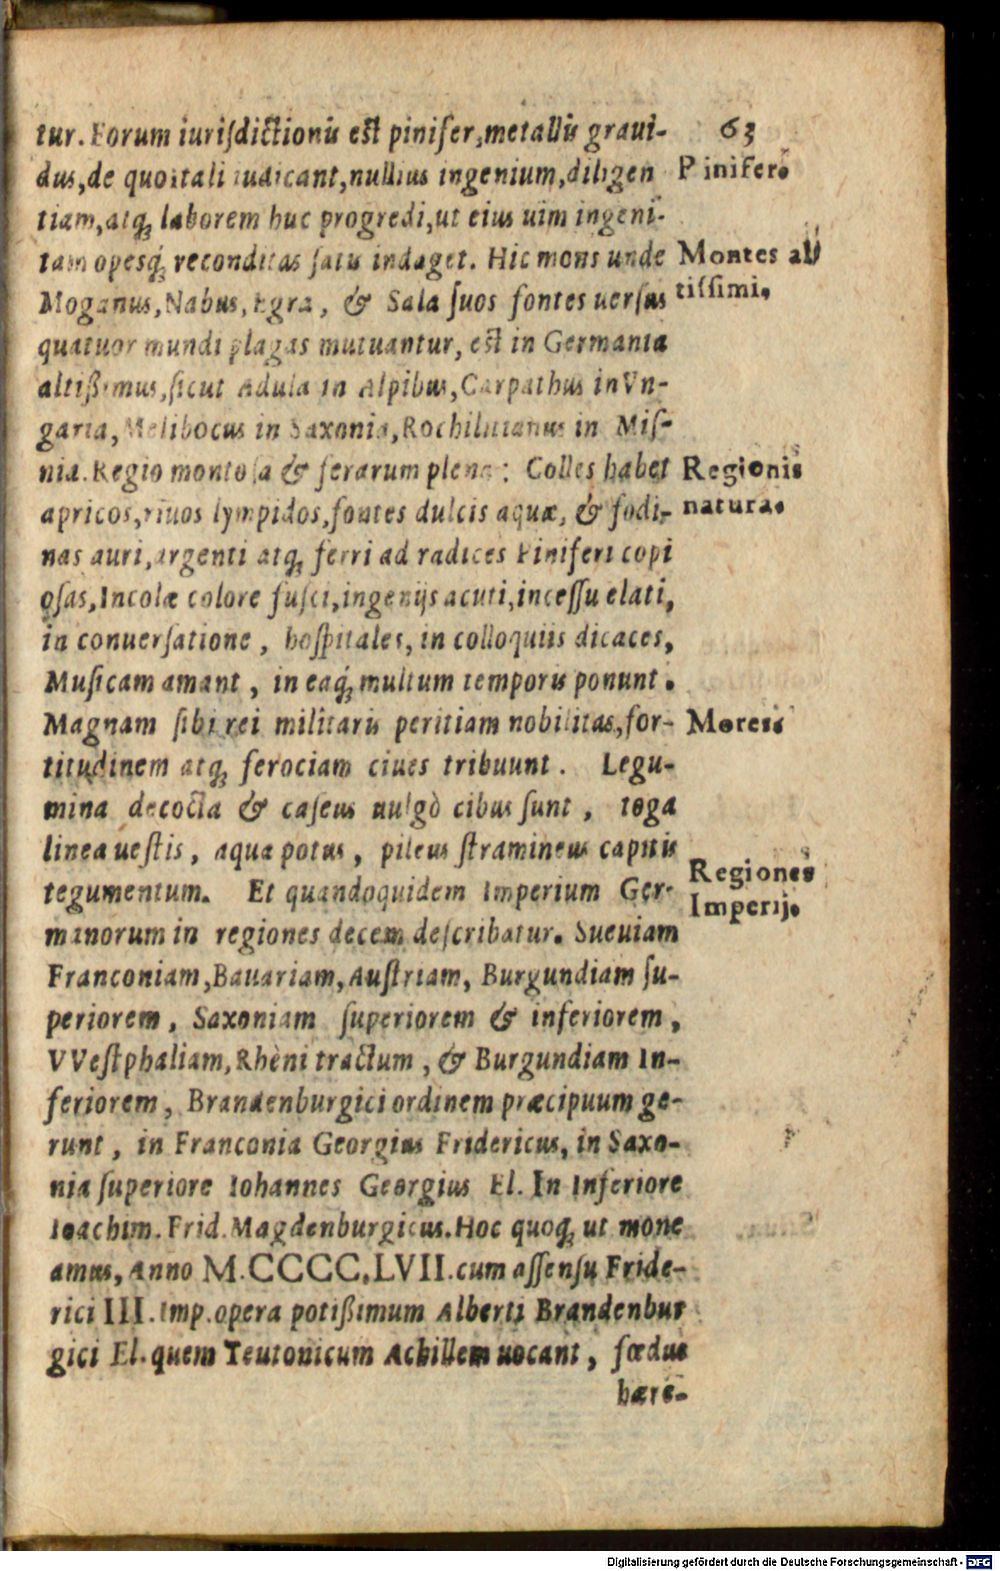 63
tur. Forum iuriſdictionis eſt pinifer, metallis graui-
dus, de quo itali iudicant, nullius ingenium, diligen
tiam, atq; laborem huc progredi, ut eius uim ingeni-
tam opesq; reconditas ſatis indaget. Hic mons unde
Moganus, Nabus, Egra, & Sala ſuos fontes uerſus
quatuor mundi plagas mutuantur, eſt in Germania
altißimus, ſicut Adula in Alpibus, Carpathus in Vn-
garia, Melibocus in Saxonia, in Miſ-
nia. Regio montoſa & ferarum plena: Colles habet
apricos, riuos lympidos, fontes dulcis aquæ, & fodi-
nas auri, argenti atq; ferri ad radices Piniferi copi
oſas, Incolæ colore fuſci, ingenijs acuti, inceſſu elati,
in conuerſatione, hoſpitales, in colloquiis dicaces,
Muſicam amant, in eaq; multum temporis ponunt.
Magnam ſibi rei militaris peritiam nobilitas, for-
titudinem atq; ferociam ciues tribuunt. Legu-
mina decocta & caſeus uulgò cibus ſunt, toga
linea ueſtis, aqua potus, pileus ſtramineus capitis
tegumentum. Et quandoquidem Imperium Ger-
manorum in regiones decem deſcribatur. Sueuiam
Franconiam, Bauariam, Auſtriam, Burgundiam ſu-
periorem, Saxoniam ſuperiorem & inferiorem,
VVeſtphaliam, Rheni tractum, & Burgundiam In-
feriorem, Brandenburgici ordinem præcipuum ge-
runt, in Franconia Georgius Fridericus, in Saxo-
nia ſuperiore Iohannes Georgius El. In Inferiore
Ioachim. Frid. Magdenburgicus. Hoc quoq; ut mone
amus, Anno M.CCCC.LVII. cum aſſenſu Fride-
rici III. Imp. opera potißimum Alberti Brandenbur
gici El. quem Teutonicum Achillem uocant, fœdus
hære-
Pinifer.
Montes al
tiſſimi.
Regionis
natura.
Mores
Regiones
Imperij.
Digitalisierung gefördert durch die Deutsche Forschungsgemeinschaft - DFG